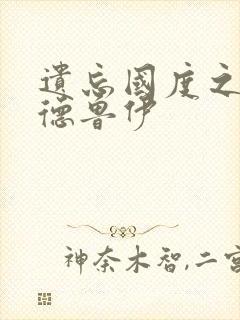 遺忘國度之
德魯伊
神奈木智,二宮